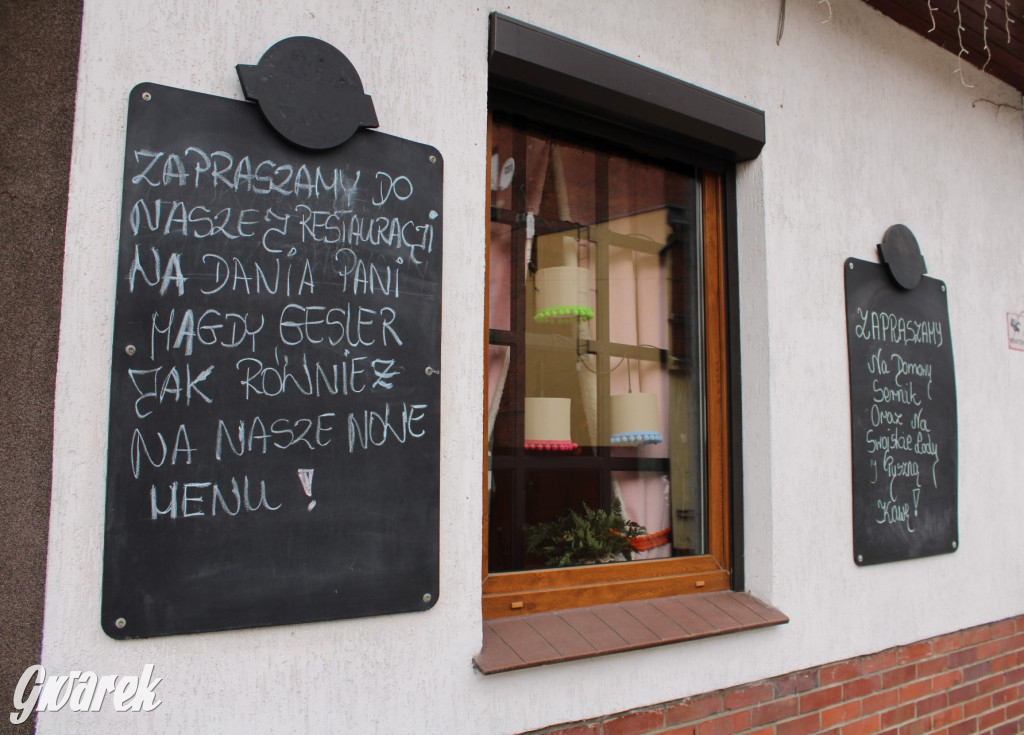 ZAPRASZAMY DO
NASZEJ RESTAURACJI
NA DANIA PANI
MAGDY GESLER
JAK RÓWNIEZ
NA NASZE NOWE
MENU !
ZAPRASZAMY
Na Domowy
Sernik
Oraz Na
Swojskie Lody
y Pyszną
Kawę!
Gwarek